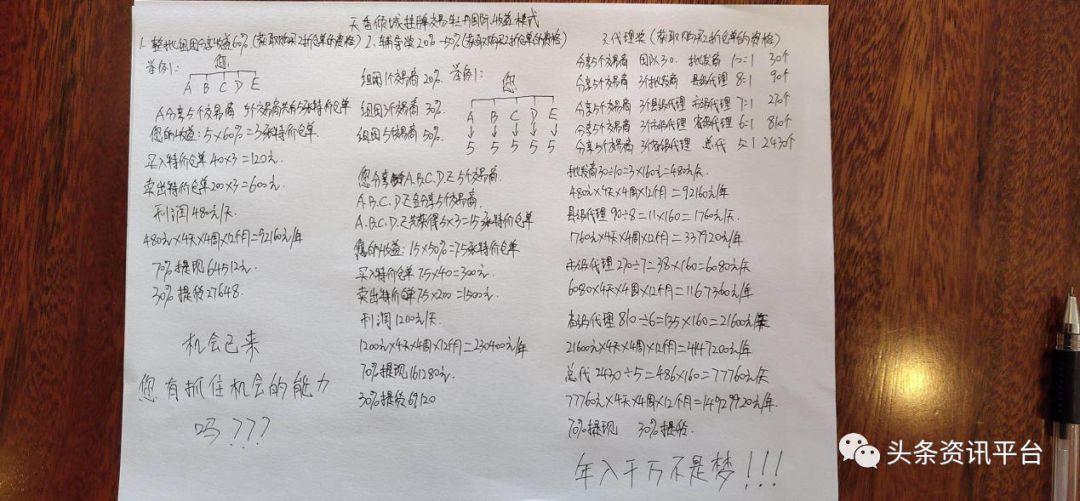 1. 整批组团
收益60%(获取购买2折仓单的资格)
举例1:
您
A B C D E
A分享5个交易商
您的收益:5×60%=3张特价仓单
买入特价仓单40×3=120元
卖出特价仓单200×3=600元
利润480元/天
480元×4天×4周×12个月=92160元/年
70%提现64512元
30%提货27648.
机会已来
您有抓住机会的能力
吗???
2、辅导奖20%-50%(获取购买2折仓单的资格)
组团1个交易商20%
组团3个交易商30%
组团5个交易商50%
举例1:
您
A B C D E
5 5 5 5 5
您分享
A.B.C.D.E5个交易商.
A.B.C.D.E各分享5个交易商
A.B.C.D.E共获得5×3=15张特价仓单
您的收益:15×50%=7.5张特价仓单
买入特价仓单7.5×40=300元
卖出特价仓单7.5×200=1500元
利润1200元/天
1200元×4天×4周×12个月=230400元/年
70%提现161280元
30%提货69120
3.代理奖(获取购买2折仓单的资格)
分享5个交易商 团队30. 批发商 10=1 30个
分享5个交易商 3个批发商 县级代理 8=1 90个
分享5个交易商 3个县级代理 市级代理 7=1 270个
分享5个交易商 3个市级代理 省级代理 6=1 810个
分享5个交易商 3个省级代理 总代 5=1 2430个
批发商30÷10=3×160元=480元
480元×4天×4周×12个月=92160元/年
县级代理 90÷8=11×160=1760元/天
1760元×4天×4周×12个月=337920元/年
市级代理270÷7=38×160=6080元/天
6080×4天×4周×12个月=1167360元/年
省级代理 810÷6=135×160=21600元/天
21600元×4天×4周×12个月=4147200元/年
总代 2430÷5=486×160=77760元/天
77760元×4天×4周×12个月=14929920元/年.
70%提现 30%提货.
年入千万不是梦!!!
头条资讯平台